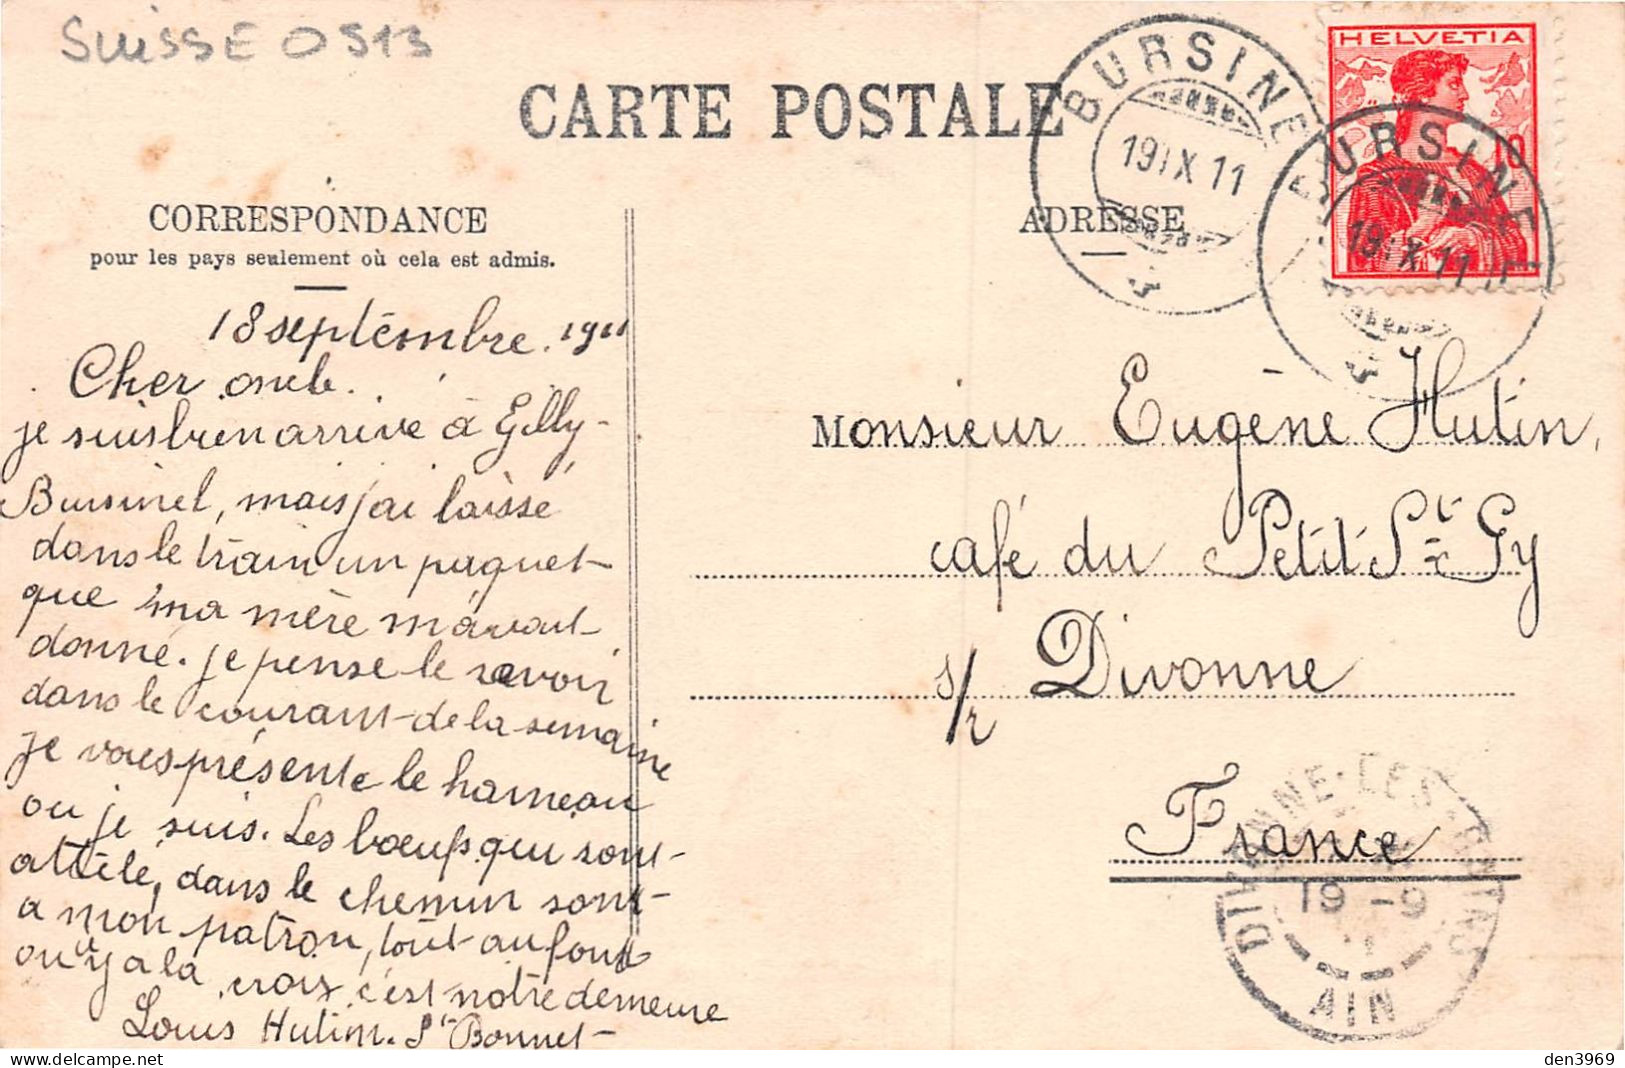 SUISSE 0513
CARTE POSTALE
HELVETIA
10
BURSINEL
19 IX 11
BURSINEL
19 IX 11
CORRESPONDANCE
pour les pays seulement où cela est admis.
ADRESSE
18 septembre. 1911
Cher oncle.
je suis bien arrivé à Gilly-
Bursinel, mais j'ai laissé
dans le train un paquet
que ma mère m'avait
donné. je pense le ravoir
dans le courant de la semaine
Je vous présente le hameau
ou je suis. Les bœufs qui sont
attélé, dans le chemin sont
a mon patron, tout au fond
ou y a la croix c'est notre demeure
Louis Hutin. St Bonnet
Monsieur Eugène Hutin,
café du Petit St Gy
s/r Divonne
France
DIVONNE-LES-BAINS
19 -9
11
AIN
den3969